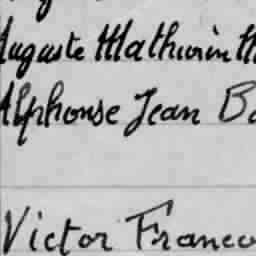 Auguste Mathurin
Alphonse Jean
Victor